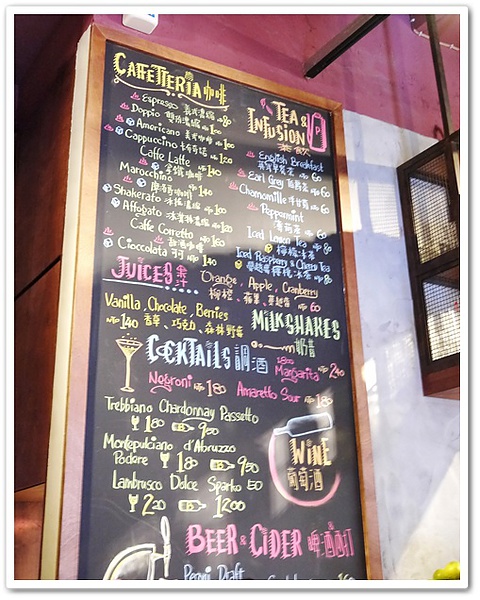 CAFFETTERIA 咖啡
Espresso 義式濃縮 NTD 80
Doppio 雙倍濃縮 NTD 100
Americano 美式咖啡 NTD 100
Cappuccino 卡布奇諾 NTD 120
Caffe Latte NTD 140
拿鐵咖啡
Marocchino NTD 140
摩洛哥咖啡
Shakerato 冰搖濃縮 NTD 140
Affogato 冰淇淋濃縮 NTD 120
Caffe Corretto NTD 160
酒咖啡
Cioccolata 可可 NTD 140
TEA & INFUSION
茶飲
English Breakfast
英式早餐茶 NTD 60
Earl Grey 伯爵茶 NTD 60
Chamomille 洋甘菊 NTD 60
Peppermint
薄荷茶 NTD 60
Iced Lemon Tea NTD 80
檸檬冰茶
Iced Raspberry & Cherry Tea
冰茶 NTD 80
JUICES 果汁
Orange, Apple, Cranberry
柳橙、蘋果、蔓越莓 NTD 60
Vanilla, Chocolate, Berries
NTD 140 香草、巧克力、森林野莓
MILKSHAKES
奶昔
COCKTAILS 調酒
Margarita NTD 240
Negroni NTD 180 Amaretto Sour NTD 180
Trebbiano Chardonnay Passetto
180 950
Montepulciano d'Abruzzo
Podere 180 950
Lambrusco Dolce Sparko EO
220 1200
WINE
葡萄酒
BEER & CIDER 啤酒
Peroni Draft